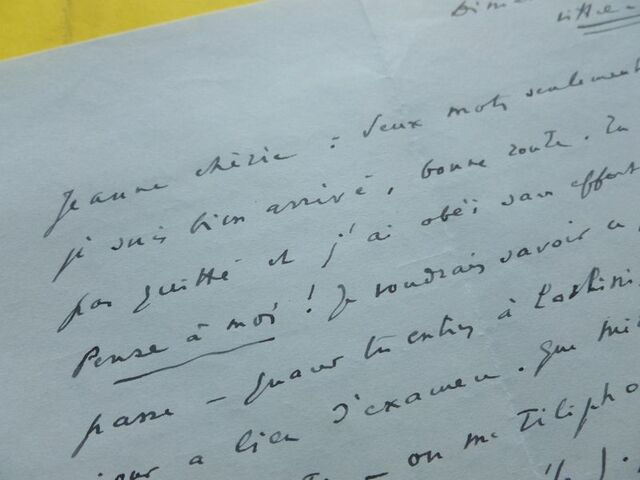 Jeanne chérie : deux mots seulement
je suis bien arrivé, bonne route. Tu
pas quitté et j'ai obéi sans effort
Pense à moi ! Je voudrais savoir ce
passe - quand tu entres à
jour a lieu l'examen. Que
on me télépho